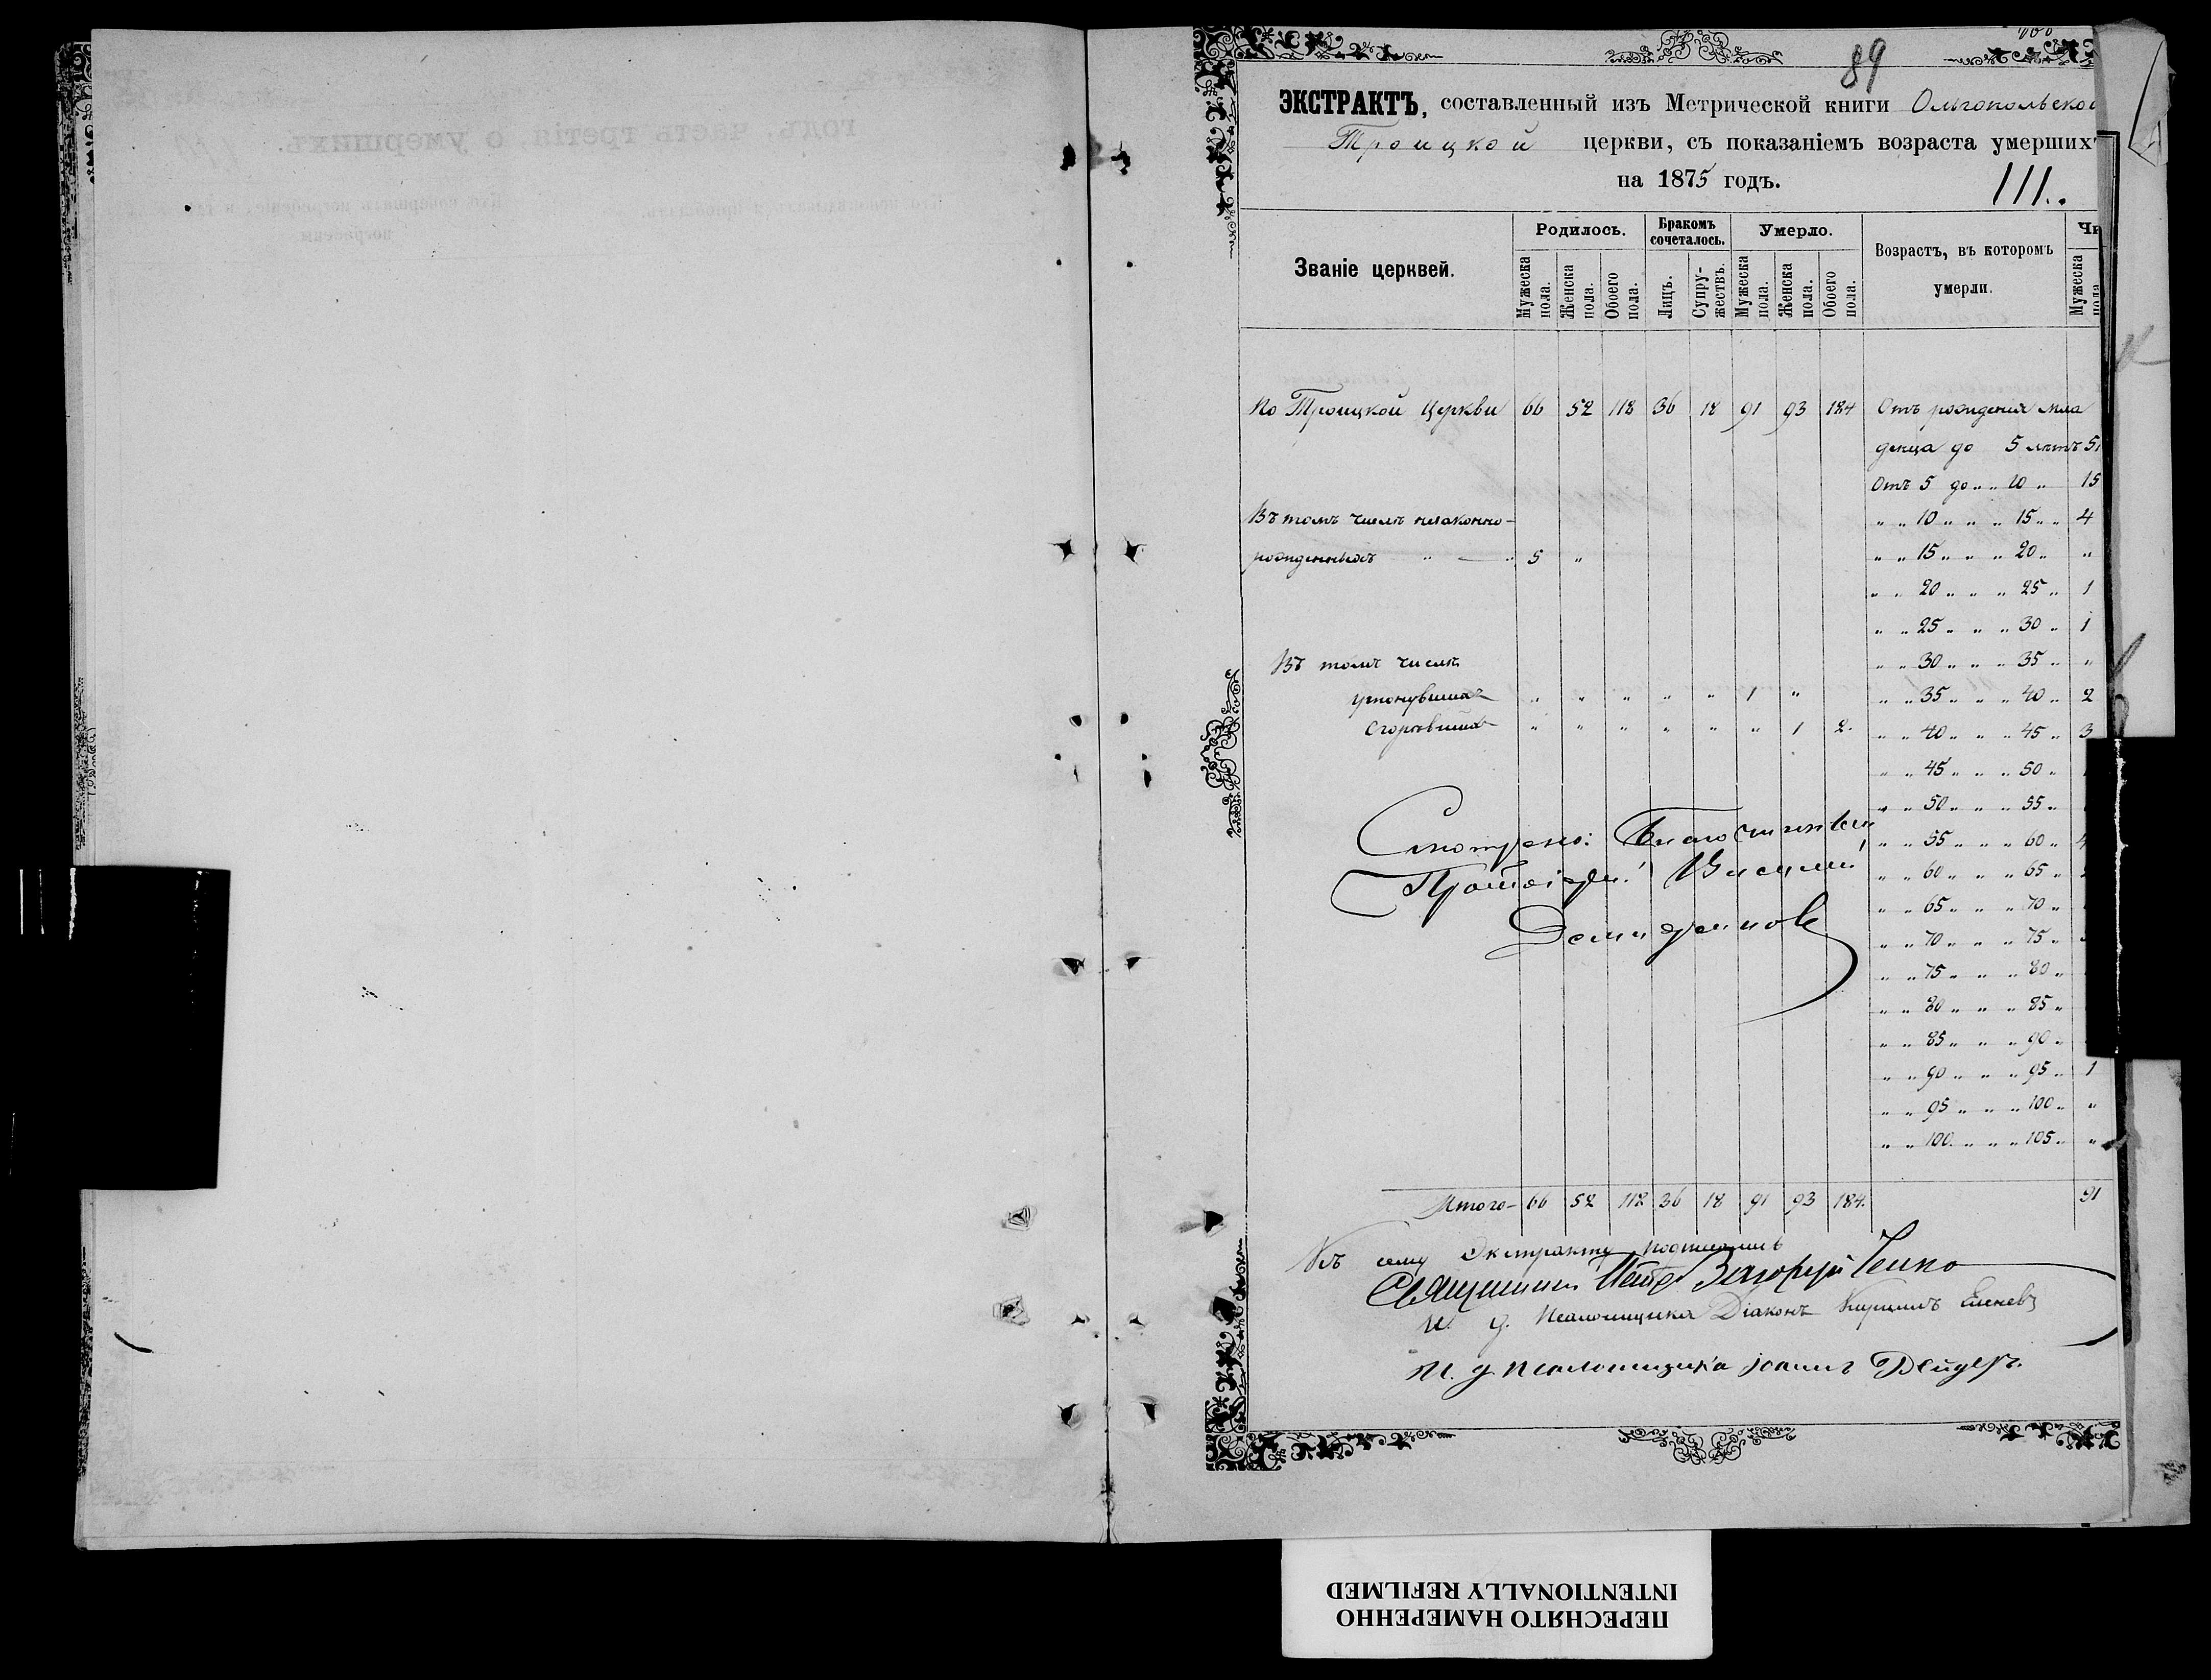 89
ЭКСТРАКТЪ, составленный изъ Метрической книги Ольгопольской
Троицкой церкви, съ показаніемъ возраста умершихъ
на 1875 годъ.
111.
Званіе церквей.
Родилось.
Бракомъ сочеталось.
Умерло.
Возрастъ, въ которомъ умерли.
Мужеска пола.
Женска пола.
Обоего пола.
Лицъ.
Супружествъ.
Мужеска пола.
Женска пола.
Обоего пола.
Мужеска пола
По Троицкой Церкви 66 52 118 36 18 91 93 184 Отъ рожденія мла
денца до 5 летъ
Отъ 5 до „ „ 10 „ 15
Въ томъ числѣ незаконно-
„ „ 10 „ „ „ 15 „ „ 4
рожденныхъ „ — 5 „
„ „ 15 „ „ „ 20 „ „
„ „ 20 „ „ „ 25 „ 1
„ „ 25 „ „ „ 30 „ 1
Въ томъ числѣ
„ „ 30 „ „ „ 35 „ „
утонувшихъ „ „ „ „ „ 1 „
„ „ 35 „ „ „ 40 „ 2
сгорѣвшихъ „ „ „ „ „ „ 1 2.
„ „ 40 „ „ „ 45 „ 3
„ „ 45 „ „ „ 50 „
„ „ 50 „ „ „ 55 „
„ „ 55 „ „ „ 60 „ 4
„ „ 60 „ „ „ 65 „
„ „ 65 „ „ „ 70 „
„ „ 70 „ „ „ 75 „
„ „ 75 „ „ „ 80 „
„ „ 80 „ „ „ 85 „
„ „ 85 „ „ „ 90 „
„ „ 90 „ „ „ 95 „ 1
„ „ 95 „ „ „ 100 „ „
„ „ 100 „ „ „ 105 „ „
Смотрено: Благочинный
Протоіерей Василий
Итого — 66 52 118 36 18 91 93 184. 91
Къ сему Экстракту подписались
Священникъ Петръ
И. д. Псаломщика Діаконъ Кириллъ
И. д. псаломщика Іоаннъ
ПЕРЕСНЯТО НАМЕРЕННО
INTENTIONALLY REFILMED